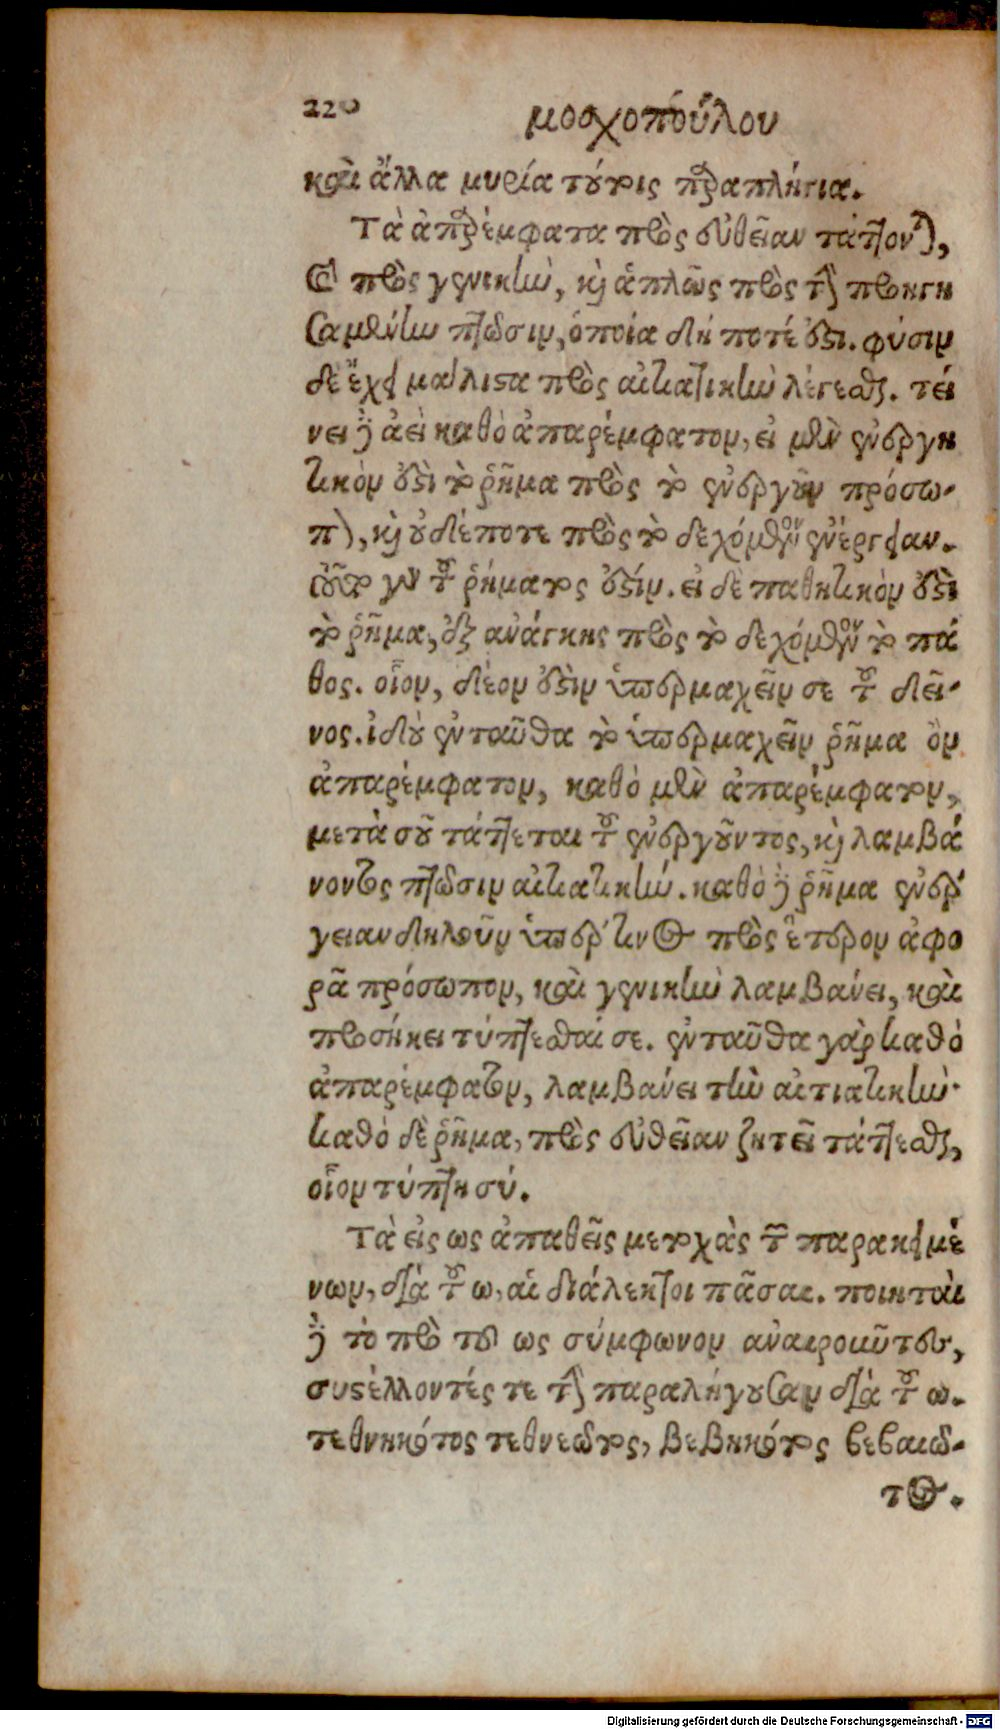 220 μοσχοπούλου
καὶ ἄλλα μυρία τούτοις παραπλήσια.
Τὰ ἀπαρέμφατα πρὸς εὐθεῖαν τάττονται,
καὶ πρὸς γενικὴν, καὶ ἁπλῶς πρὸς τὴν προηγη
σαμένην πτῶσιν, ὁποία δή ποτέ ἐστι. φύσιν
δὲ ἔχει μάλιστα πρὸς αἰτιατικὴν λέγεσθαι. τεί
νει δὲ ἀεὶ καθὸ ἀπαρέμφατον, εἰ μὲν ἐνεργη
τικὸν ἐστὶ τὸ ῥῆμα πρὸς τὸ ἐνεργοῦν πρόσω-
πον, καὶ οὐδέποτε πρὸς τὸ δεχόμενον ἐνέργειαν.
τοῦτο γὰρ τοῦ ῥήματος ἐστίν. εἰ δὲ παθητικὸν ἐστὶ
τὸ ῥῆμα, ἐξ ἀνάγκης πρὸς τὸ δεχόμενον τὸ πά
θος. οἷον, δέον ἐστὶν ὑπερμαχεῖν σε τοῦ δεῖ-
νος. ἰδοὺ ἐνταῦθα τὸ ὑπερμαχεῖν ῥῆμα ὂν
ἀπαρέμφατον, καθὸ μὲν ἀπαρέμφατον,
μετὰ σοῦ τάττεται τοῦ ἐνεργοῦντος, καὶ λαμβά
νοντος πτῶσιν αἰτιατικήν. καθὸ δὲ ῥῆμα ἐνέρ
γειαν δηλοῦν ὑπέρ τινος πρὸς ἕτερον ἀφο
ρᾶ πρόσωπον, καὶ γενικὴν λαμβάνει, καὶ
προσήκει τύπτεσθαί σε. ἐνταῦθα γὰρ καθὸ
ἀπαρέμφατον, λαμβάνει τὴν αἰτιατικήν·
καθὸ δὲ ῥῆμα, πρὸς εὐθεῖαν ζητεῖ τάττεσθαι,
οἷον τύπτη σύ.
Τὰ εἰς ως ἀπαθεῖς μετοχὰς τῶν παρακειμέ
νων, διὰ τοῦ ω, αἱ διάλεκτοι πᾶσαι. ποιηταὶ
δὲ τὸ πρὸ τοῦ ως σύμφωνον ἀναιροῦντες,
συστέλλοντές τε τὴν παραλήγουσαν διὰ τοῦ ω.
τεθνηκότος τεθνεῶτος, βεβηκότος βεβαιῶ-
τος.
Digitalisierung gefördert durch die Deutsche Forschungsgemeinschaft - DFG